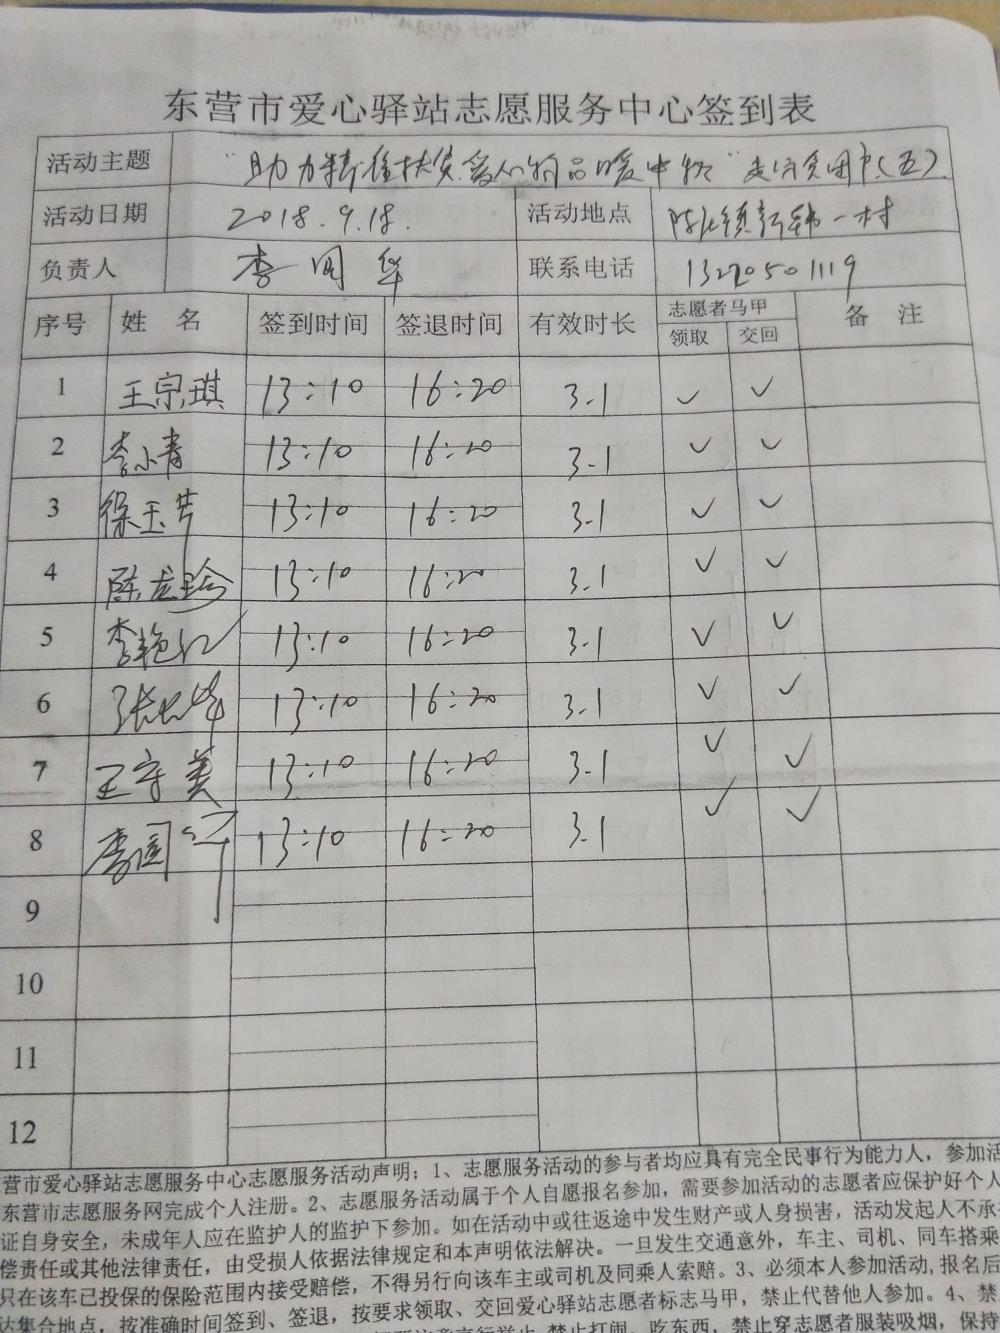 东营市爱心驿站志愿服务中心签到表
活动主题 "助力精准扶贫 爱心物品暖中秋" 走访贫困户(五)
活动日期 2018.9.18. 活动地点 陈庄镇新韩一村
负责人 李国华 联系电话 13220501119
序号 姓 名 签到时间 签退时间 有效时长 志愿者马甲 备 注
领取 交回
1 王宗琪 13:10 16:20 3.1 ✓ ✓
2 李小青 13:10 16:20 3.1 ✓ ✓
3 徐玉芳 13:10 16:20 3.1 ✓ ✓
4 陈龙珍 13:10 16:20 3.1 ✓ ✓
5 李艳红 13:10 16:20 3.1 ✓ ✓
6 张大华 13:10 16:20 3.1 ✓ ✓
7 王守美 13:10 16:20 3.1 ✓ ✓
8 李国华 13:10 16:20 3.1 ✓ ✓
9
10
11
12
营市爱心驿站志愿服务中心志愿服务活动声明：1、志愿服务活动的参与者均应具有完全民事行为能力人，参加活
东营市志愿服务网完成个人注册。2、志愿服务活动属于个人自愿报名参加，需要参加活动的志愿者应保护好个人
证自身安全，未成年人应在监护人的监护下参加。如在活动中或往返途中发生财产或人身损害，活动发起人不承
偿责任或其他法律责任，由受损人依据法律规定和本声明依法解决。一旦发生交通意外，车主、司机、同车搭乘
只在该车已投保的保险范围内接受赔偿，不得另行向该车主或司机及同乘人索赔。3、必须本人参加活动,报名后
达集合地点，按准确时间签到、签退，按要求领取、交回爱心驿站志愿者标志马甲，禁止代替他人参加。4、禁
禁止打闹、吃东西，禁止穿志愿者服装吸烟，保持